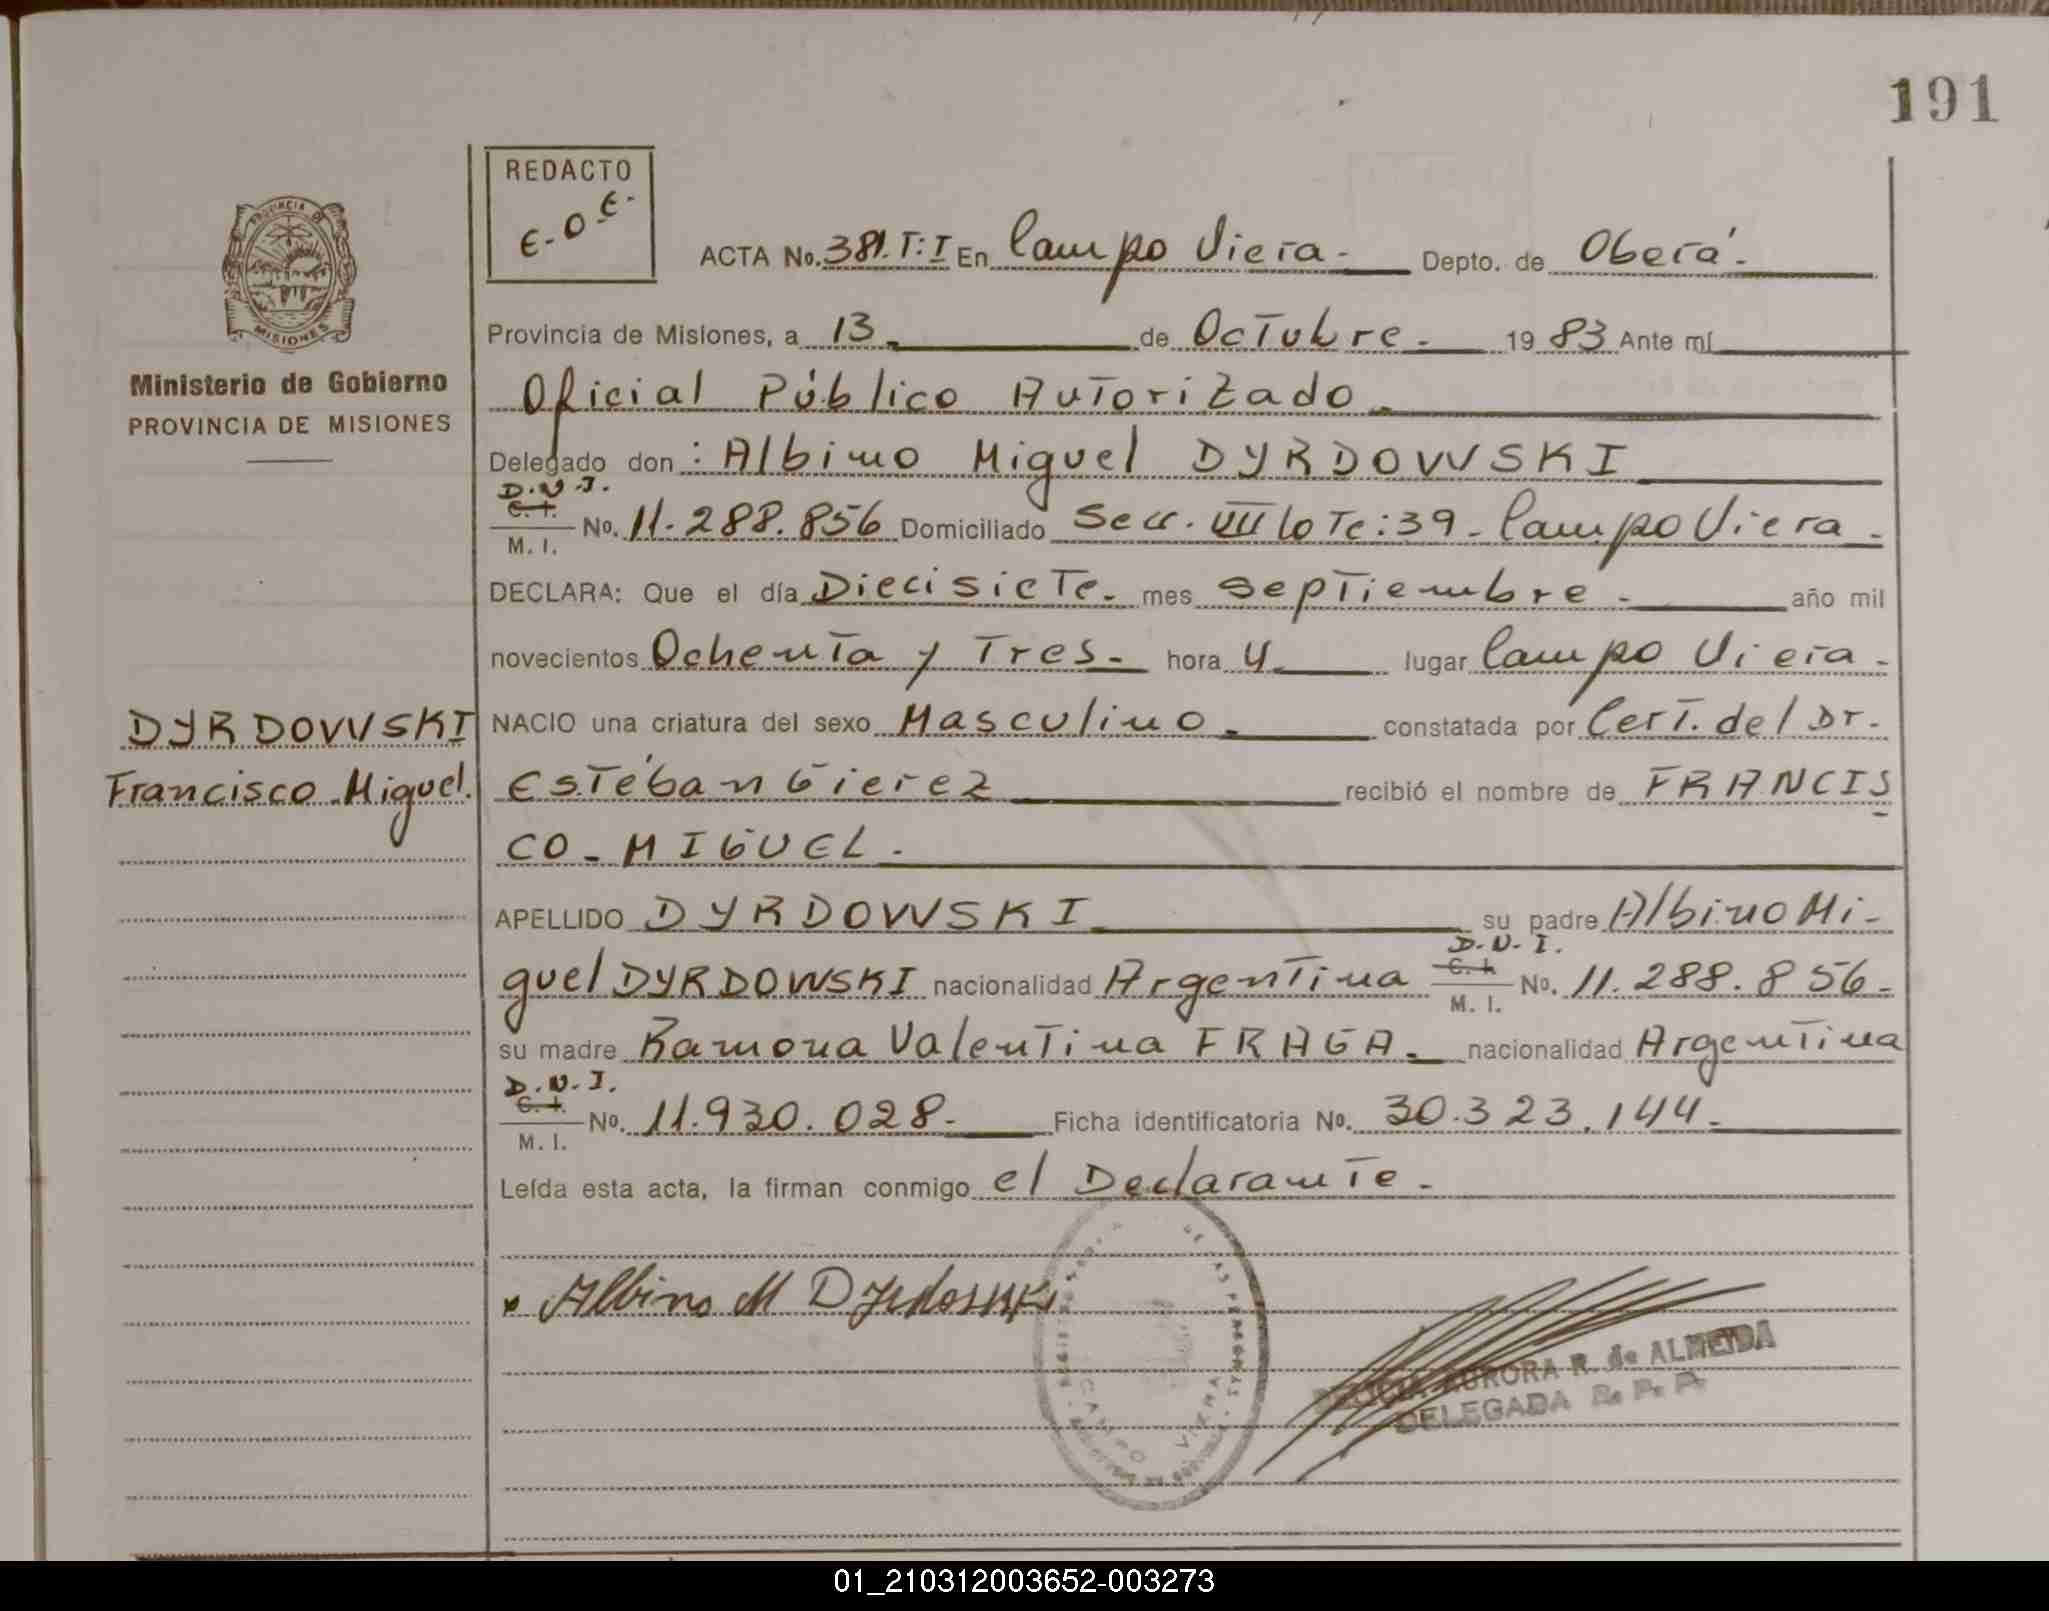 191
PROVINCIA DE
MISIONES
Ministerio de Gobierno
PROVINCIA DE MISIONES
DYRDOWSKI
Francisco Miguel.
REDACTO
E-O E.
ACTA No. 381. T:I En Campo Viera - Depto. de Oberá.
Provincia de Misiones, a 13 de Octubre. 19 83 Ante mí
Oficial Público Autorizado.
Delegado don: Albino Miguel DYRDOWSKI
D.N.I.
C. I.
M. I.
No. 11.288.856 Domiciliado Secc. VII lote: 39 - Campo Viera -
DECLARA: Que el día Diecisiete. mes septiembre. año mil
novecientos Ochenta y Tres. hora 4 lugar Campo Viera -
NACIO una criatura del sexo Masculino. constatada por Cert. del Dr.
Estéban Gierez recibió el nombre de FRANCIS
CO - MIGUEL.
APELLIDO DYRDOWSKI su padre Albino Mi-
D.N.I.
C. I.
M. I.
guel DYRDOWSKI nacionalidad Argentina No. 11.288.856 -
su madre Ramona Valentina FRAGA. nacionalidad Argentina
D.N.I.
C. I.
M. I.
No. 11.930.028 - Ficha identificatoria No. 30.323.144 -
Leída esta acta, la firman conmigo el Declarante.
Albino M Dyrdowski
CAMPO VIERA
AURORA R. de ALMEIDA
DELEGADA R. P. P.
01_210312003652-003273